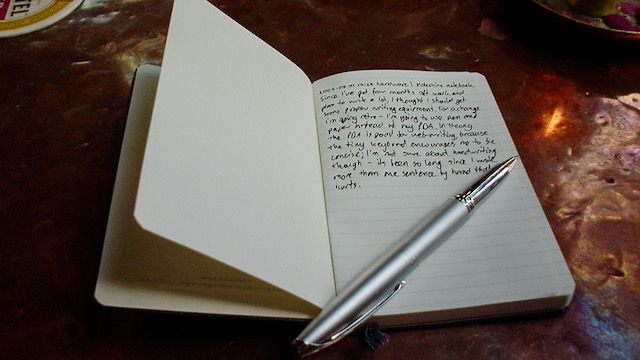 TEL
moleskine notebook.
Since I've got four months off work and
plan to write a lot, I thought I should get
some proper writing equipment. For a change
I'm going retro - I'm going to use pen and
paper instead of my PDA. In theory
the PDA is good for web-writing, because
the tiny keyboard encourages me to be
concise; I'm not sure about handwriting
though - its been so long since I wrote
more than one sentence by hand that
hurts.